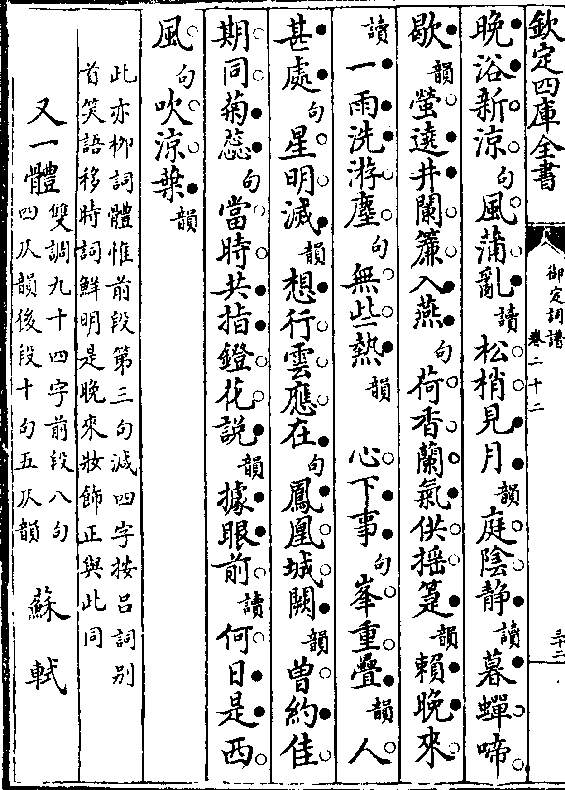 欽定四庫全書
御定詞譜
卷二十二
三十二
晚浴新涼句風蒲亂讀松梢見月韻庭陰静讀暮蟬啼
歇韻螢遶井闌簾入燕句荷香蘭氣供摇箑韻賴晚來
讀一雨洗游塵句無些熱韻心下事句峯重疊韻人
甚處句星明滅韻想行雲應在句鳳凰城闕韻曾約佳
期同菊蕊句當時共指鐙花説韻據眼前讀何日是西
風句吹涼葉韻
此亦柳詞體惟前段第三句減四字按吕詞别
首笑語移時詞鮮明是晚來妝飾正與此同
又一體雙調九十四字前段八句
四仄韻後段十句五仄韻蘇軾